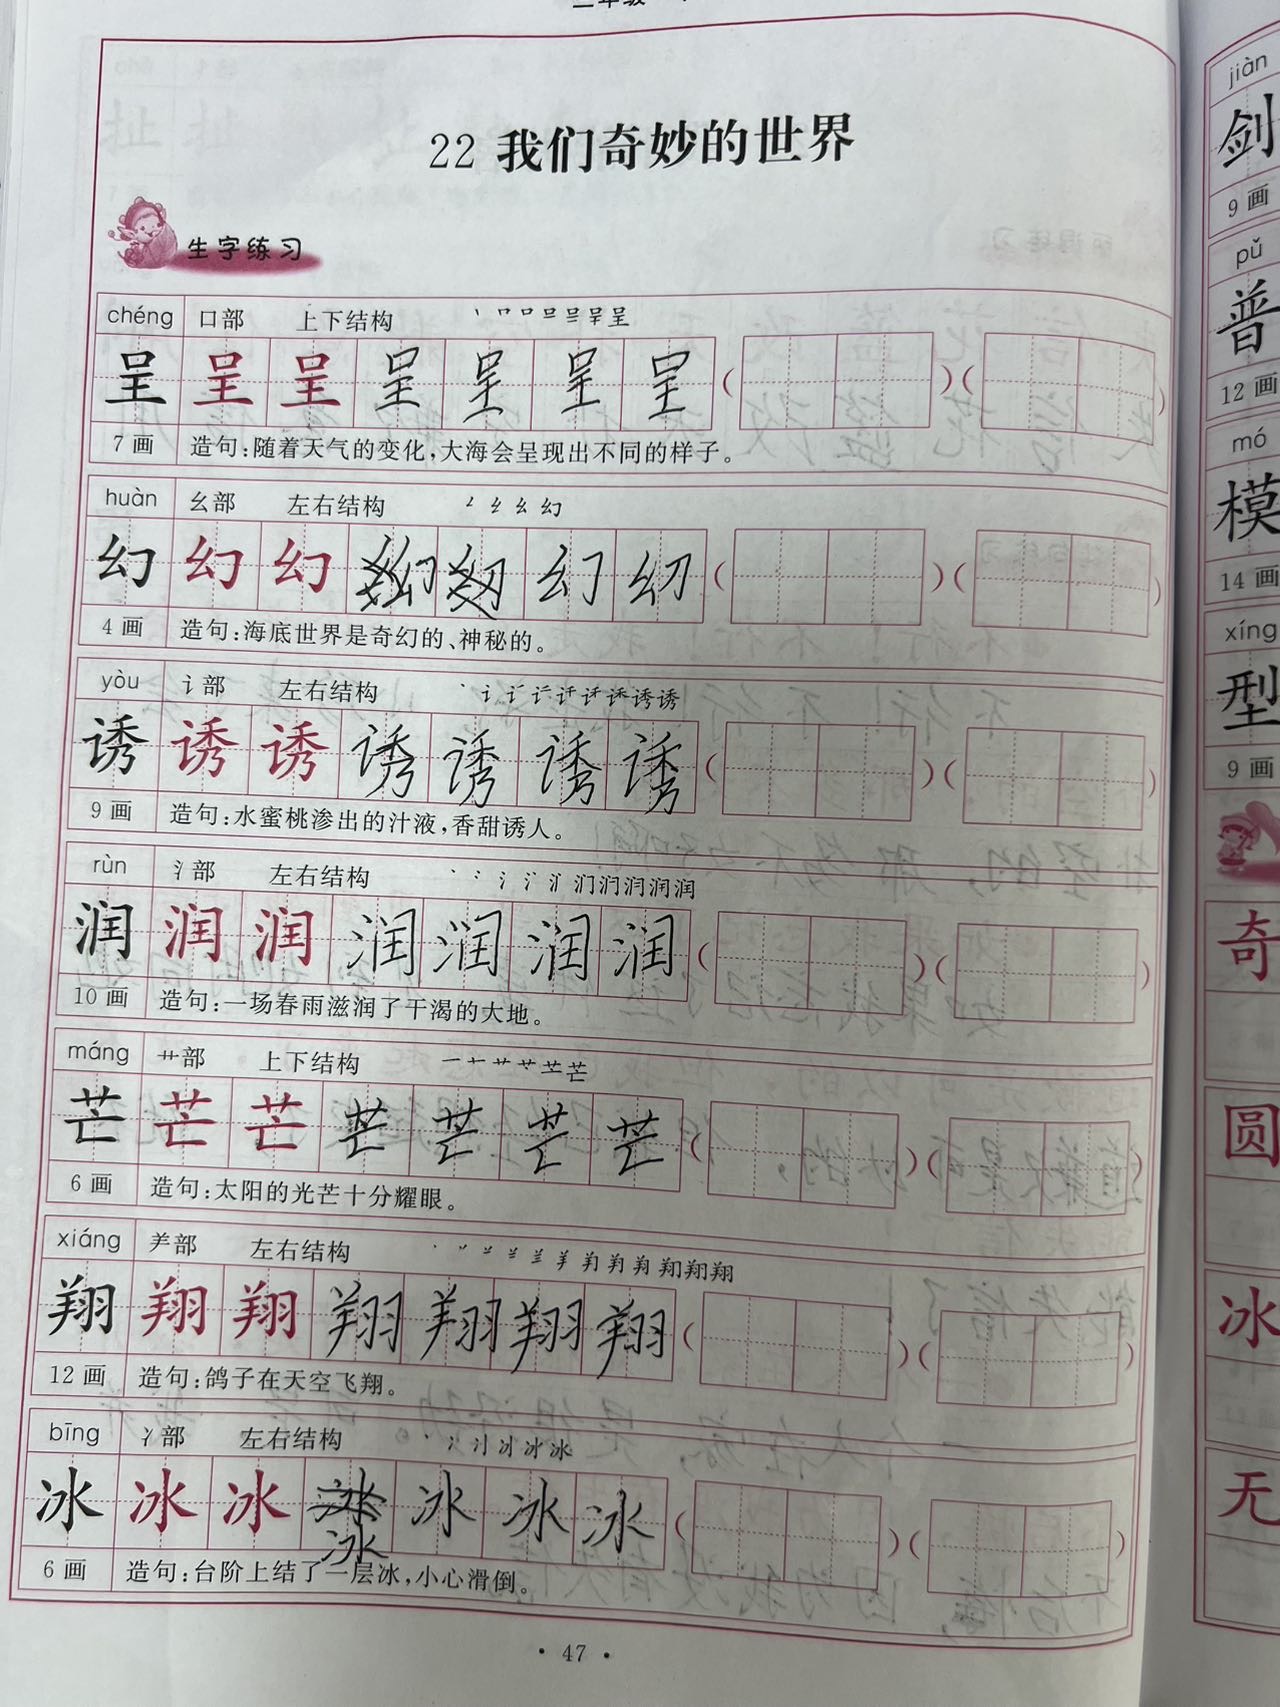 22 我们奇妙的世界
生字练习
chéng 口部 上下结构
呈 呈 呈 呈 呈 呈 呈 ( )( )
7 画 造句:随着天气的变化,大海会呈现出不同的样子。
huàn 幺部 左右结构
幻 幻 幻 幻 幻 ( )( )
4 画 造句:海底世界是奇幻的、神秘的。
yòu 讠部 左右结构
诱 诱 诱 诱 诱 诱 诱 ( )( )
9 画 造句:水蜜桃渗出的汁液,香甜诱人。
rùn 氵部 左右结构
润 润 润 润 润 润 润 ( )( )
10 画 造句:一场春雨滋润了干渴的大地。
máng 艹部 上下结构
芒 芒 芒 芒 芒 芒 芒 ( )( )
6 画 造句:太阳的光芒十分耀眼。
xiáng 羊部 左右结构
翔 翔 翔 翔 翔 翔 翔 ( )( )
12 画 造句:鸽子在天空飞翔。
bīng 冫部 左右结构
冰 冰 冰 冰 冰 冰 冰
冰
6 画 造句:台阶上结了一层冰,小心滑倒。
· 47 ·
jiàn
剑
9 画
pǔ
普
12 画
mó
模
14 画
xíng
型
9 画
奇
圆
冰
无